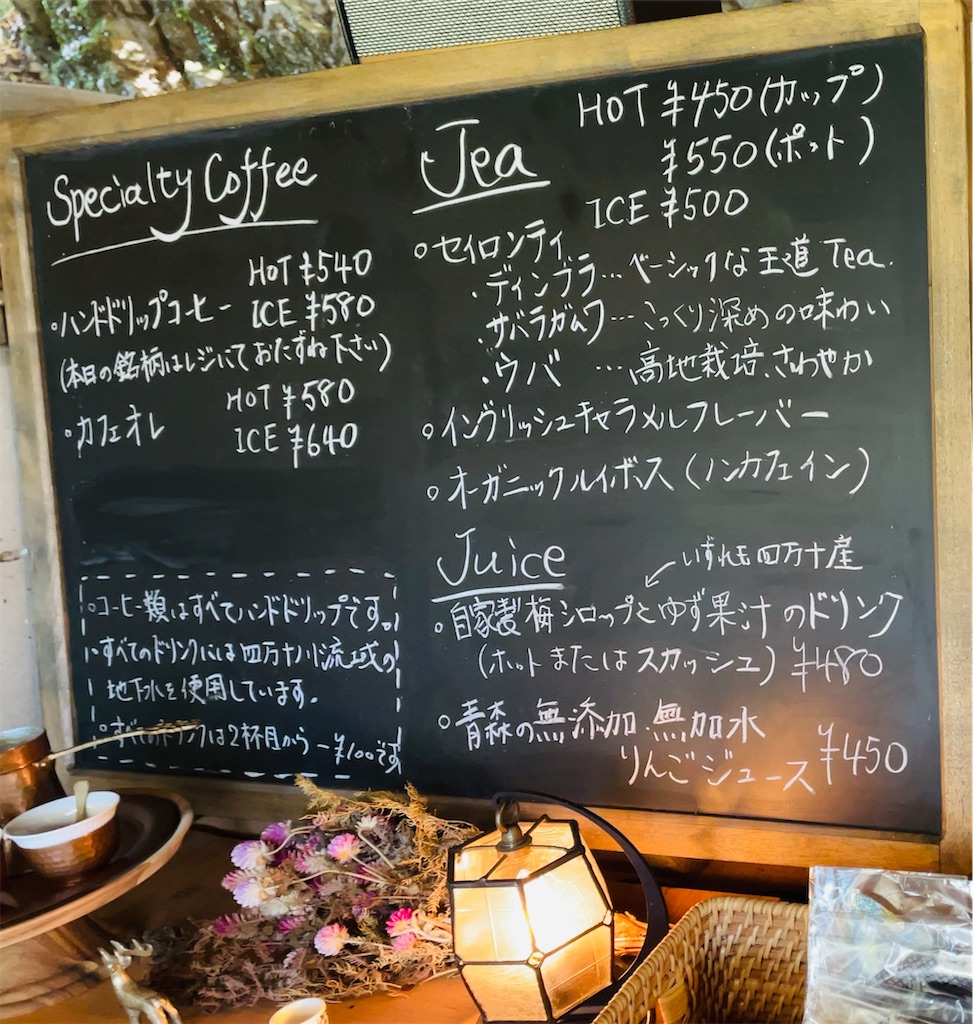 Specialty Coffee
HOT ¥540
◦ハンドドリップコーヒー ICE ¥580
(本日の銘柄はレジにておたずね下さい)
HOT ¥580
・カフェオレ ICE ¥640
◦コーヒー類はすべてハンドドリップです。
・すべてのドリンクには四万十川流域の
地下水を使用しています。
◦すべてのドリンクは2杯目から －¥100です
Tea HOT ¥450(カップ)
¥550(ポット)
ICE ¥500
◦セイロンティ
・ディンブラ…ベーシックな王道Tea.
・サバラガムワ…こっくり深めの味わい
・ウバ …高地栽培、さわやか
◦イングリッシュキャラメルフレーバー
◦オーガニックルイボス(ノンカフェイン)
Juice
いずれも四万十産
◦自家製梅シロップとゆず果汁のドリンク
(ホットまたはスカッシュ) ¥480
◦青森の無添加 無加水
りんごジュース ¥450